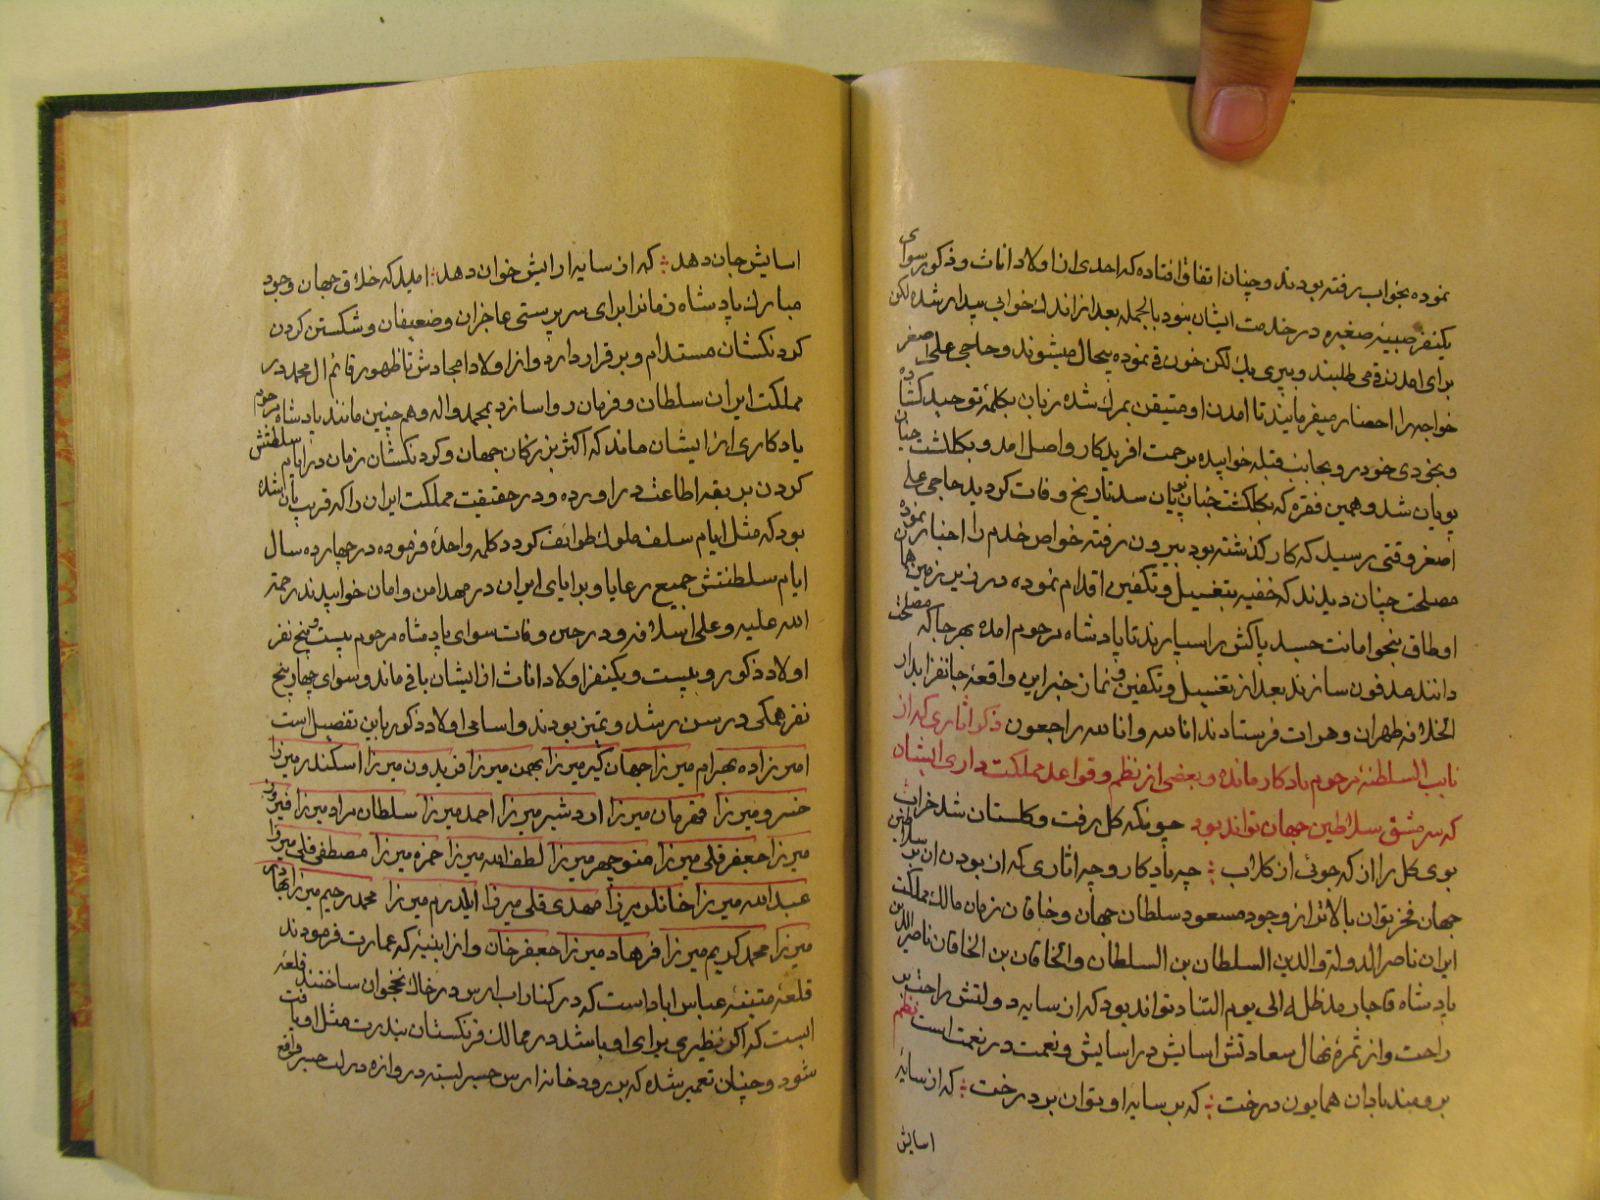 نموده بخواب رفته بودند و چنان اتفاق افتاده که احدی از اولاد اناث و ذکور سوای
یکنفر صبیه صغیره در خدمت ایشان نبود بالجمله بعد از اندک خوابی بیدار شده لکن
برای امدن قی می طلبند و پیری بک لکن خون قی نموده بیحال میشوند و حاجی علی اصغر
خواجه را احضار میفرمایند تا امدن او متیقن بمرک شده زبان بکلمه توحید کشاده
و بخودی خود رو بجانب قبله خوابیده برحمت افریدکار واصل امد و بکلکشت جنان
پویان شد و همین فقره که بکلکشت جنان پویان شد تاریخ وفات کردید حاجی علی
اصغر وقتی رسید که کار کذشته بود بیرون رفته خواص خدم را اخبار نموده
مصلحت چنان دیدند که خفیه بتغسیل و تکفین اقدام نموده در زیر زمین همان
اوطاق بنحو امانت جسد پاکش را سپارند تا پادشاه مرحوم امده بهر جا که مصلحت
دانند مدفون سازند بعد از تغسیل و تکفین و نماز خبر این واقعه جانفزا بدار
الخلافه طهران و هرات فرستادند انا لله و انا الیه راجعون ذکر اثاری که از
نایب السلطنه مرحوم یادکار مانده و بعضی از نظم و قواعد مملکت داری ایشان
که سرمشق سلاطین جهان تواند بود چونکه کل رفت و کلستان شد خراب
بوی کل را از که جوئی از کلاب چه یادکار و چه اثاری که از بودن ان بر سلاطین
جهان فخر توان بالاتر از وجود مسعود سلطان جهان و خاقان زمان مالک مملکت
ایران ناصر الدوله والدین السلطان بن السلطان والخاقان بن الخاقان ناصرالدین
پادشاه قاجار مد ظله الی یوم التناد تواند بود که از سایه دولتش راحت بر
راحت و از ثمره نهال سعادتش اسایش در اسایش و نعمت در نعمت است نظم
برومند باد ان همایون درخت که بر سایه او توان برد رخت که از سایه
اسایش
اسایش جان دهد که از سایه ارایش خوان دهد امید که خلاق جهان وجود
مبارک پادشاه زمانرا برای سرپرستی عاجزان و ضعیفان و شکستن کردن
کردنکشان مستدام و برقرار دارد و از اولاد امجادش تا ظهور قائم ال محمد در
مملکت ایران سلطان و فرمان روا سازد بمحمد و اله و همچنین مانند پادشاه مرحوم
یادکاری از ایشان ماند که اکثر بزرکان جهان و کردنکشان زمان در ایام سلطنتش
کردن بربقه اطاعت دراورده و در حقیقت مملکت ایران را که قریب بان شده
بود که مثل ایام سلف ملوک طوائف کردد کلمه واحده فرموده در چهارده سال
ایام سلطنتش جمیع رعایا و برایای ایران در مهد امن و امان خوابیدند رحمة
الله علیه و علی اسلافه و در حین وفات سوای پادشاه مرحوم بیست و پنج نفر
اولاد ذکور و بیست و یکنفر اولاد اناث از ایشان باقی ماند و سوای چهار پنج
نفر همکی در سن رشد و تمیز بودند و اسامی اولاد ذکور باین تفصیل است
امیرزاده بهرام میرزا جهان کیر میرزا بهمن میرزا فریدون میرزا اسکندر میرزا
خسرو میرزا قهرمان میرزا اردشیر میرزا احمد میرزا سلطان مراد میرزا فیروز
میرزا جعفر قلی میرزا منوچهر میرزا لطف الله میرزا حمزه میرزا مصطفی قلی میرزا
عبدالله میرزا خانلر میرزا مهدی قلی میرزا ایلدرم میرزا محمد رحیم میرزا بهادر
میرزا محمد کریم میرزا فرهاد میرزا جعفر خان و از ابنیه که عمارت فرمودند
قلعه متینه عباس اباد است که در کنار اب ارس در خاک نخجوان ساختند قلعه
ایست که اکر نظیری برای او باشد در ممالک فرنکستان بندرت مثل او یافت
شود و چنان تعمیر شده که بر رودخانه ارس جسر بسته دروازه در لب جسر واقع